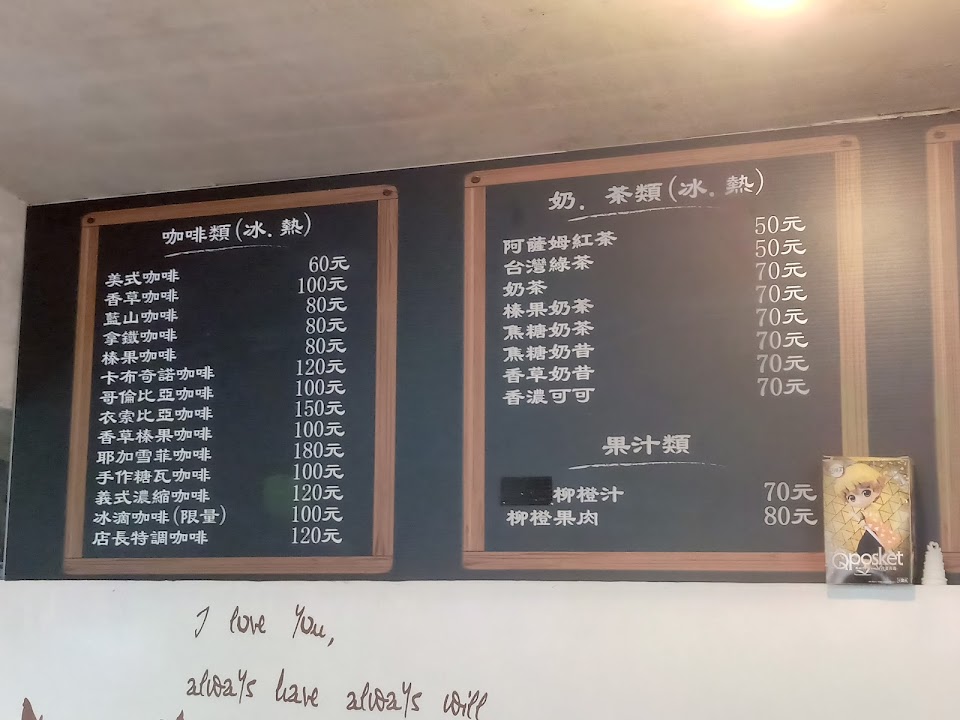 咖啡類(冰.熱)
美式咖啡 60元
香草咖啡 100元
藍山咖啡 80元
拿鐵咖啡 80元
榛果咖啡 80元
卡布奇諾咖啡 120元
哥倫比亞咖啡 100元
衣索比亞咖啡 150元
香草榛果咖啡 100元
耶加雪菲咖啡 180元
手作糖瓦咖啡 100元
義式濃縮咖啡 120元
冰滴咖啡(限量) 100元
店長特調咖啡 120元
奶.茶類(冰.熱)
阿薩姆紅茶 50元
台灣綠茶 50元
奶茶 70元
榛果奶茶 70元
焦糖奶茶 70元
焦糖奶昔 70元
香草奶昔 70元
香濃可可 70元
果汁類
柳橙汁 70元
柳橙果肉 80元
Qposket
I love You,
always have always will